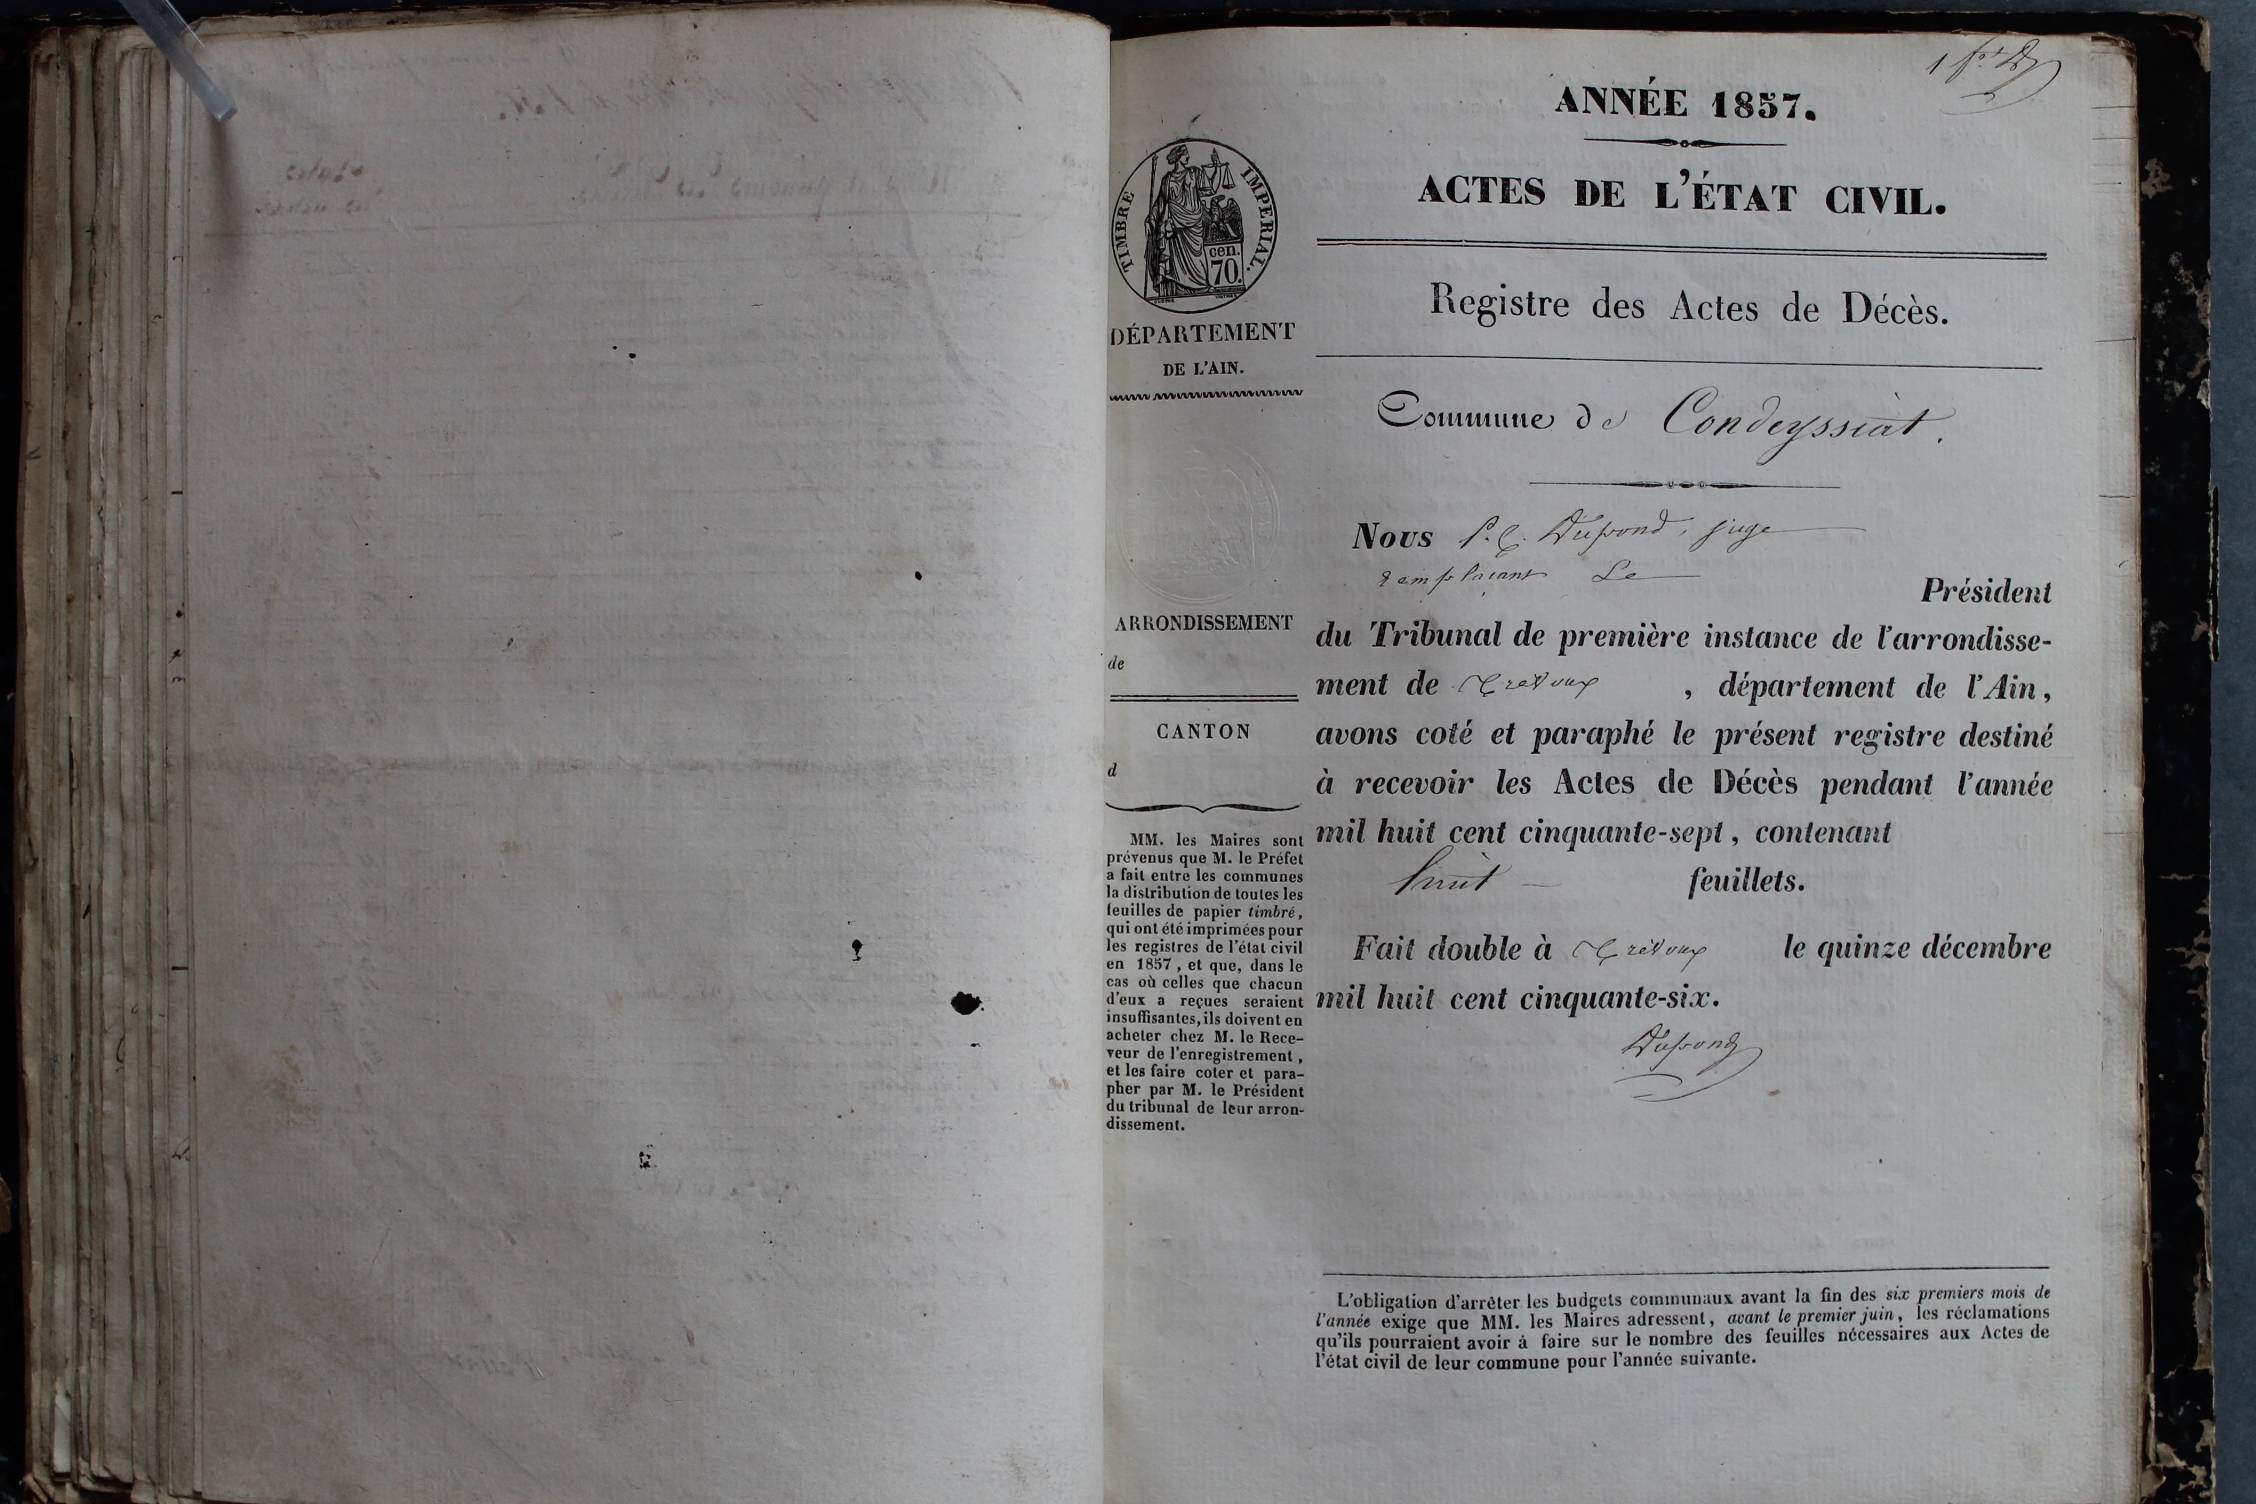 ANNÉE 1857.
ACTES DE L'ÉTAT CIVIL.
Registre des Actes de Décès.
Commune de Condeyssiat.
TIMBRE IMPERIAL.
cen.
70.
DÉPARTEMENT
DE L'AIN.
ARRONDISSEMENT
de
CANTON
d
MM. les Maires sont
prévenus que M. le Préfet
a fait entre les communes
la distribution de toutes les
feuilles de papier timbré,
qui ont été imprimées pour
les registres de l'état civil
en 1857, et que, dans le
cas où celles que chacun
d'eux a reçues seraient
insuffisantes, ils doivent en
acheter chez M. le Rece-
veur de l'enregistrement,
et les faire coter et para-
pher par M. le Président
du tribunal de leur arron-
dissement.
Nous P. C. Dupond, juge
remplaçant Le
Président
du Tribunal de première instance de l'arrondisse-
ment de Trévoux, département de l'Ain,
avons coté et paraphé le présent registre destiné
à recevoir les Actes de Décès pendant l'année
mil huit cent cinquante-sept, contenant
huit feuillets.
Fait double à Trévoux le quinze décembre
mil huit cent cinquante-six.
Dupond
L'obligation d'arrêter les budgets communaux avant la fin des six premiers mois de
l'année exige que MM. les Maires adressent, avant le premier juin, les réclamations
qu'ils pourraient avoir à faire sur le nombre des feuilles nécessaires aux Actes de
l'état civil de leur commune pour l'année suivante.